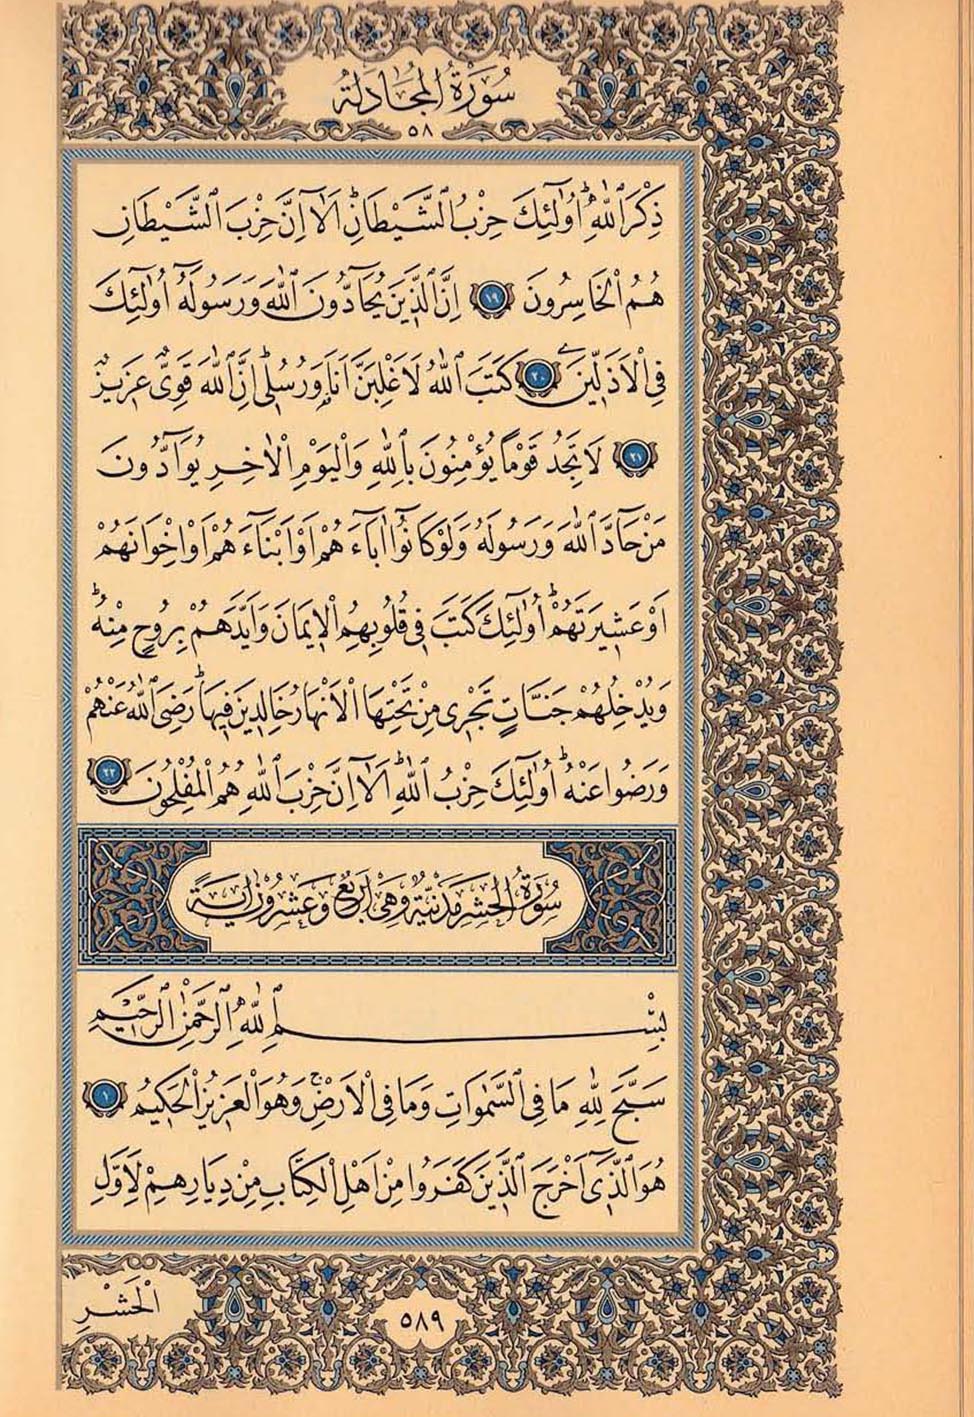 سُورَةُ الْمُجَادَلَةِ
٥٨
ذِكْرَ اللّٰهِۜ اُو۬لٰٓئِكَ حِزْبُ الشَّيْطَانِۜ اَلَٓا اِنَّ حِزْبَ الشَّيْطَانِ
هُمُ الْخَاسِرُونَ ﴿١٩﴾ اِنَّ الَّذ۪ينَ يُحَٓادُّونَ اللّٰهَ وَرَسُولَهُٓ اُو۬لٰٓئِكَ
فِي الْاَذَلّ۪ينَ ﴿٢٠﴾ كَتَبَ اللّٰهُ لَاَغْلِبَنَّ اَنَا۬ وَرُسُل۪يۜ اِنَّ اللّٰهَ قَوِيٌّ عَز۪يزٌ
﴿٢١﴾ لَا تَجِدُ قَوْمًا يُؤْمِنُونَ بِاللّٰهِ وَالْيَوْمِ الْاٰخِرِ يُوَٓادُّونَ
مَنْ حَٓادَّ اللّٰهَ وَرَسُولَهُ وَلَوْ كَانُٓوا اٰبَٓاءَهُمْ اَوْ اَبْنَٓاءَهُمْ اَوْ اِخْوَانَهُمْ
اَوْ عَش۪يرَتَهُمْۜ اُو۬لٰٓئِكَ كَتَبَ ف۪ي قُلُوبِهِمُ الْا۪يمَانَ وَاَيَّدَهُمْ بِرُوحٍ مِنْهُۜ
وَيُدْخِلُهُمْ جَنَّاتٍ تَجْر۪ي مِنْ تَحْتِهَا الْاَنْهَارُ خَالِد۪ينَ ف۪يهَاۜ رَضِيَ اللّٰهُ عَنْهُمْ
وَرَضُوا عَنْهُۜ اُو۬لٰٓئِكَ حِزْبُ اللّٰهِۜ اَلَٓا اِنَّ حِزْبَ اللّٰهِ هُمُ الْمُفْلِحُونَ ﴿٢٢﴾
سُورَةُ الْحَشْرِ مَدَنِيَّةٌ وَهِيَ اَرْبَعٌ وَعِشْرُونَ اٰيَةً
بِسْمِ اللّٰهِ الرَّحْمٰنِ الرَّح۪يمِ
سَبَّحَ لِلّٰهِ مَا فِي السَّمٰوَاتِ وَمَا فِي الْاَرْضِۚ وَهُوَ الْعَز۪يزُ الْحَك۪يمُ ﴿١﴾
هُوَ الَّذ۪ٓي اَخْرَجَ الَّذ۪ينَ كَفَرُوا مِنْ اَهْلِ الْكِتَابِ مِنْ دِيَارِهِمْ لِاَوَّلِ
٥٨٩
الْحَشْرِ